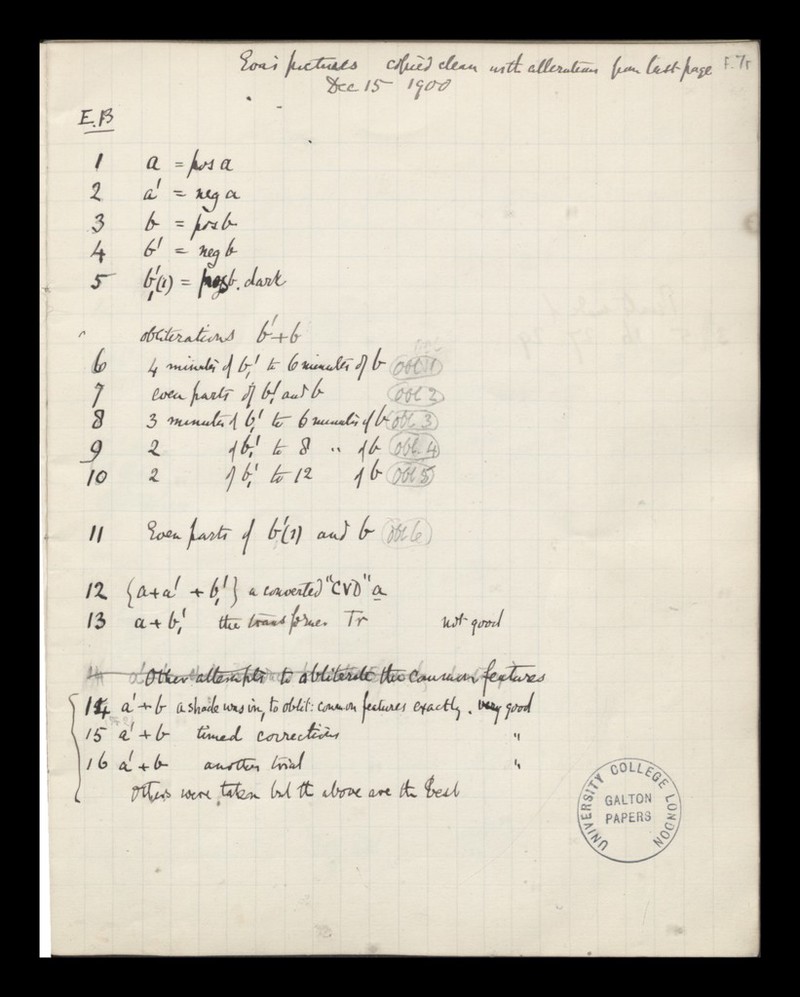 Eva's pictures copied clean with alterations from last page F.7r
Dec 15 1900
E.B
1 a = pos a
2 a' = neg a
3 b = pos b
4 b' = neg b
5 b'₁(1) = b. dark
obliterations b'+b
6 4 minutes of b'₁ to 6 minutes of b obl 1
7 even parts of b'₁ and b obl 2
8 3 minutes of b'₁ to 6 minutes of b obl 3
9 2 of b'₁ to 8 " of b obl. 4
10 2 of b'₁ to 12 of b obl 5
11 Even parts of b'(1) and b obl 6
12 {a+a' + b'₁} a converted "CVD" a
13 a + b'₁ the transformer Tr not good
Other attempts to obliterate the common features
14 a' + b a shade was in, to oblit: common features exactly. very good
15 a' + b timed corrections "
16 a' + b another trial "
Others were taken but th above are the best
UNIVERSITY COLLEGE LONDON
GALTON
PAPERS